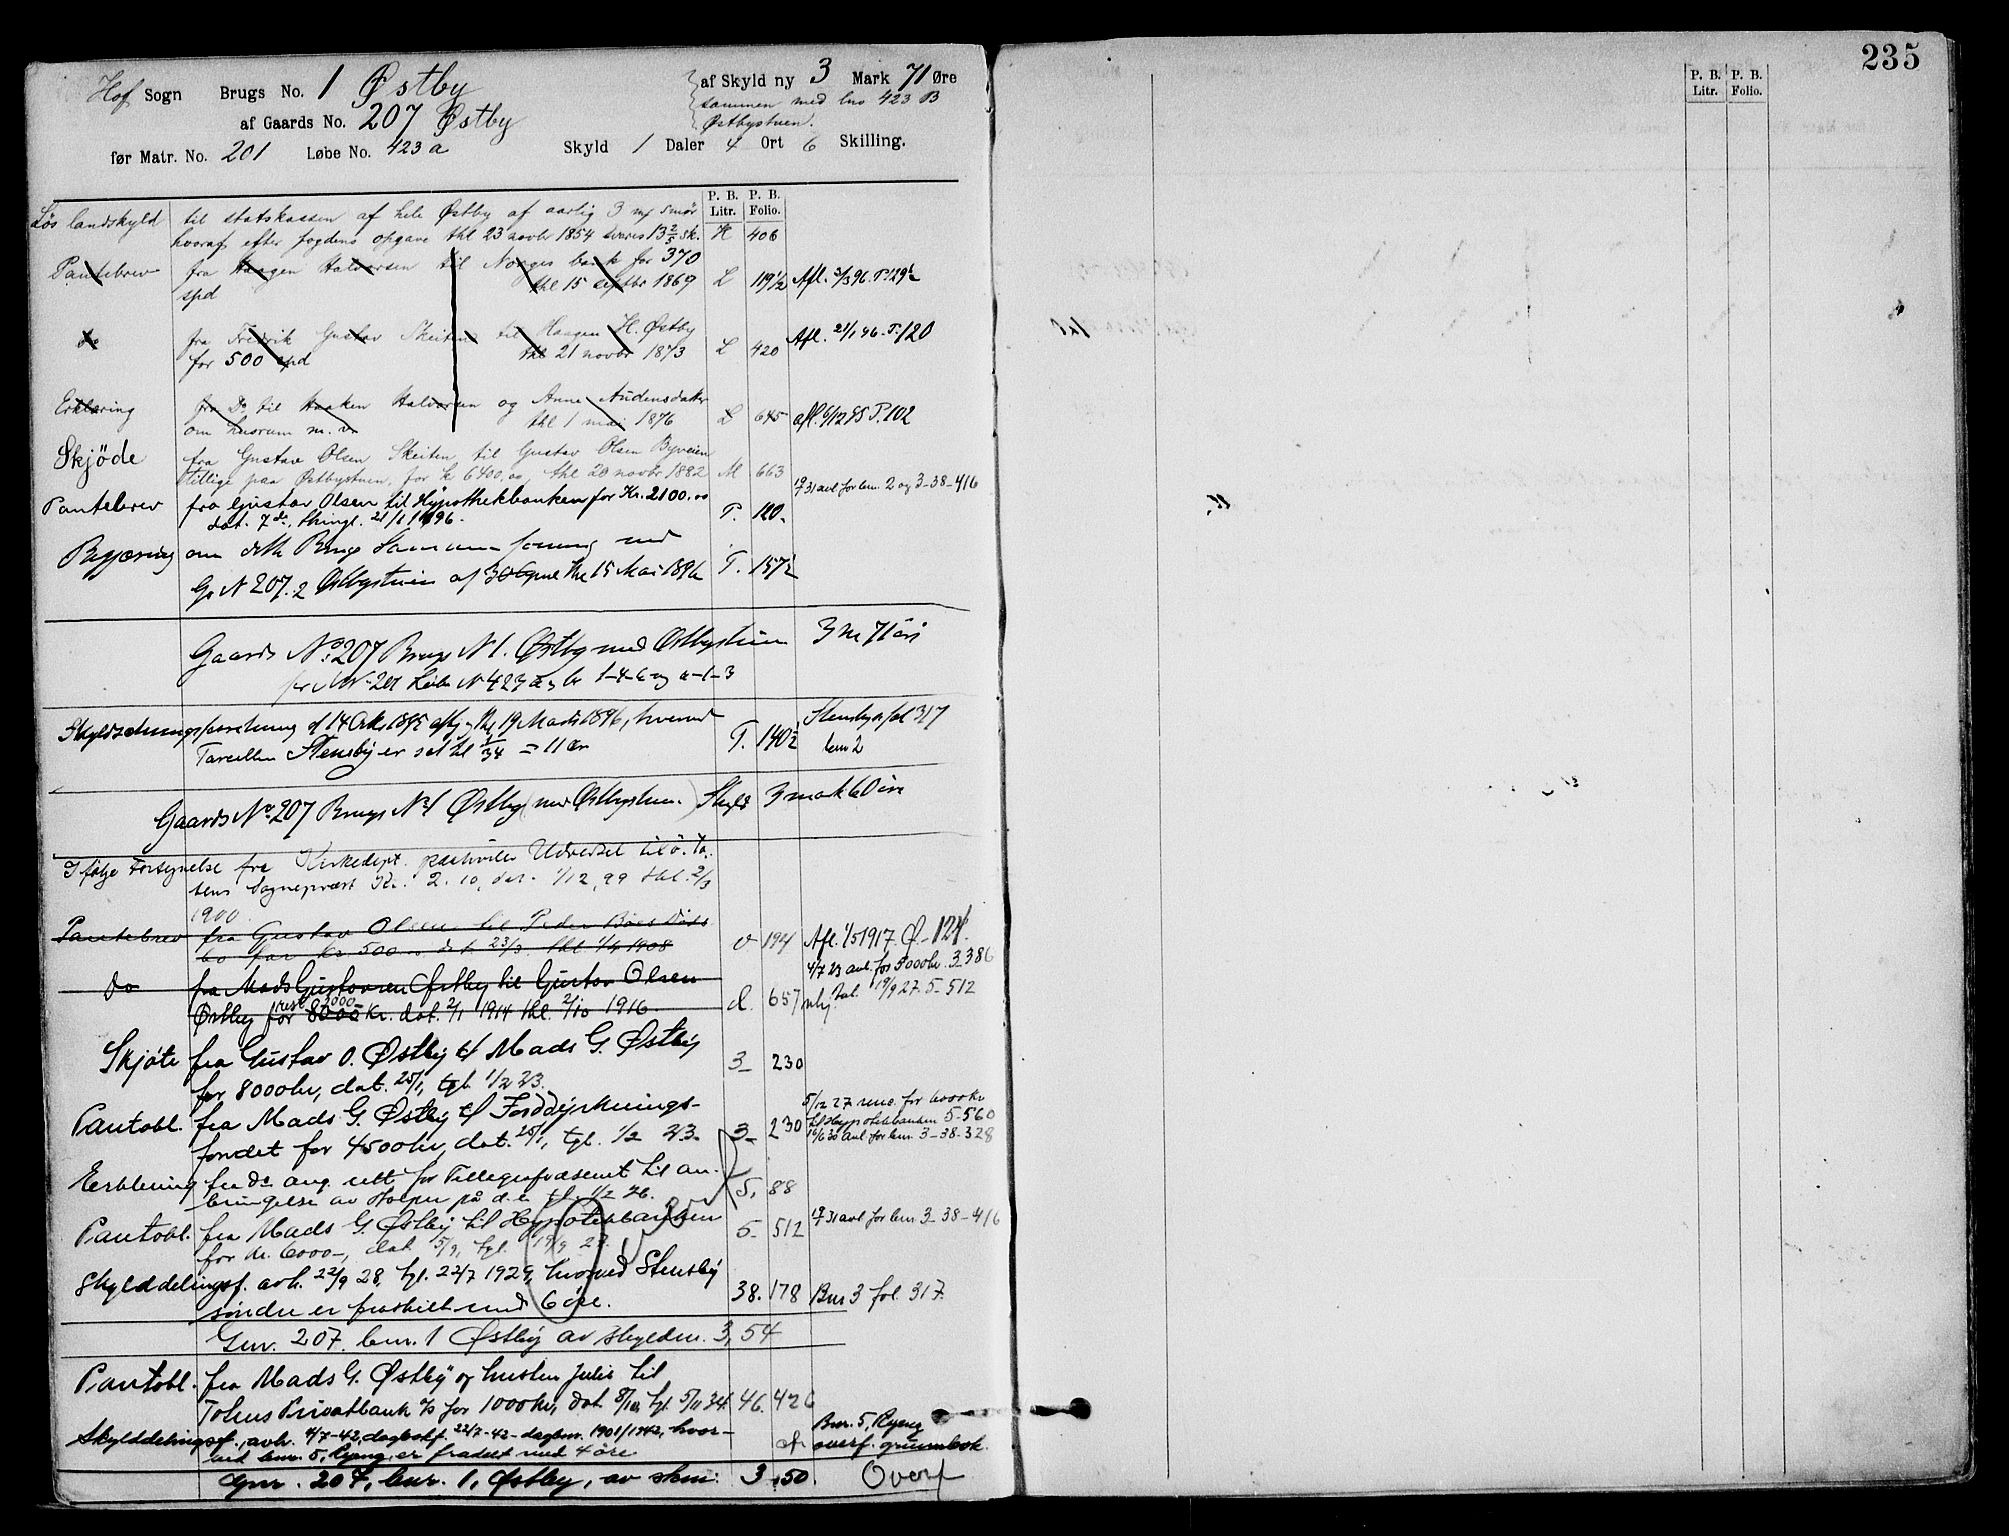 235
Hof Sogn Brugs No. 1 Østby af Skyld ny 3 Mark 71 Øre
sammen med lno 423 B
af Gaards No. 207 Østby Østbystuen.
før Matr. No. 201 Løbe No. 423 a Skyld 1 Daler 4 Ort 6 Skilling.
P. B. Litr. P. B. Folio.
P. B. Litr. P. B. Folio.
Løs landskyld til statskassen af hele Østby af aarlig 3 smør
hvoraf efter fogdens opgave thl 23 novbr 1854 svares 13 2/5 sk. K 406
Pantebrev fra Haagen Halvorsen til Norges bank for 370
spd thl 15 septbr 1869 L 119 1/2 Afl. 5/3 96. P. 129 1/2
do fra Fredrik Gustav Skeiten til Haagen H. Østby
for 500 spd thl 21 novbr 1873 L 420 Afl. 21/1 96. P. 120
Erklæring fra Do til Haaken Halvorsen og Anne Audensdatter
om husrum m. v. thl 1 mai 1876 L 645 afl. 6/12 95 P. 102
Skjöde fra Gustav Olsen Skeiten til Gustav Olsen Byveien
tillige paa Østbystuen, for kr 6400,00, thl 20 novbr 1882 M 663
Pantebrev fra Gustav Olsen til Hypothekbanken for Kr. 2100.00
dat. 7 de, thingl. 21/1 1896. P. 120. 31 avl for bnr. 2 og 3-38-416
Begjæring om dette Brugs Sammenføining med
Gs N 207.2 Østbystuen af 30 April thl 15 Mai 1896 P. 157 1/2
Gaards No: 207 Brugs N 1. Østby med Østbystuen 3 m 71 öre
M No 201 Löbe N 423 a, b 1-4-6 og 0-1-3
Skyldsetningsforretning af 14 Okt. 1895 thl 19 Marts 1896, hvorved
Parcellen Stensby er sat til = 11 ør P. 140 1/2 Stensby fol 317
bnr 2
Gaards No. 207 Brugs No 1 Østby (med Østbystuen.) Skyld 3 mark 60 öre
Ifølge Forsynelse fra Kirkedept. paahviler Udredsel til
Sogneprest Kr. 2.10, dat. 1/12, 99 thl. 2/3
1900.
Pantebrev fra Gustav Olsen til Peder
for Kr 500 dat. 23/3 thl 1908 v 194 Afl. 1/5 1917. Ø-124.
do fra Mads Gustavsen Østby til Gustav Olsen 4/7 23 avl. for 5000 kr. 3-386
Østby for rest 3000 8000 Kr. dat. 2/1 1914 thl. 2/10 1916 d. 657 19/9 27. 5-512
Skjöte fra Gustav O. Østby til Mads G. Østby
for 8000 kr, dat. 25/1, tgl. 1/2 23. 3- 230
Pantobl. fra Mads G. Østby til Jorddyrknings-
fondet for 4500 kr, dat. 25/1, tgl. 1/2 23. 3- 230
5/12 27 for 6000 kr
til Hypotekbanken 5-560
16/6 30 avl. for bnr. 3-38-328
Erklæring fra do ang. rett for Telegrafvæsenet til an-
bringelse av stolper på d.e. tgl. 1/2 26. 5, 88
Pantobl. fra Mads G. Østby til Hypotekbanken
for kr. 6000-, dat 5/9, tgl. 19/9 27. 5- 512 31 avl for bnr 3-38-416
Skylddelingsf. avh. 22/9 28, tgl. 22/7 1929, hvorved Stensby
söndre er fraskilt med 6 öre. 38. 178 Bnr 3 fol. 317.
Gnr. 207. bnr. 1 Østby av skylden. 3,54
Pantobl. fra Mads G. Østby og hustru Julie til
Tolgas Privatbank A/S for 1000 kr, dat 8/10, tgl. 5/11 34. 46. 426
Skylddelingsf., avh. 4/7-42, dagbokf. 22/7-42- dagbnr. 1901/1942, hvor-
ved bnr. 5, Ryeng, er fradelt med 4 öre Bnr. 5, Ryeng
overf. grunnbok.
Gnr. 207, bnr. 1, Østby, av skm: 3,50. Overf